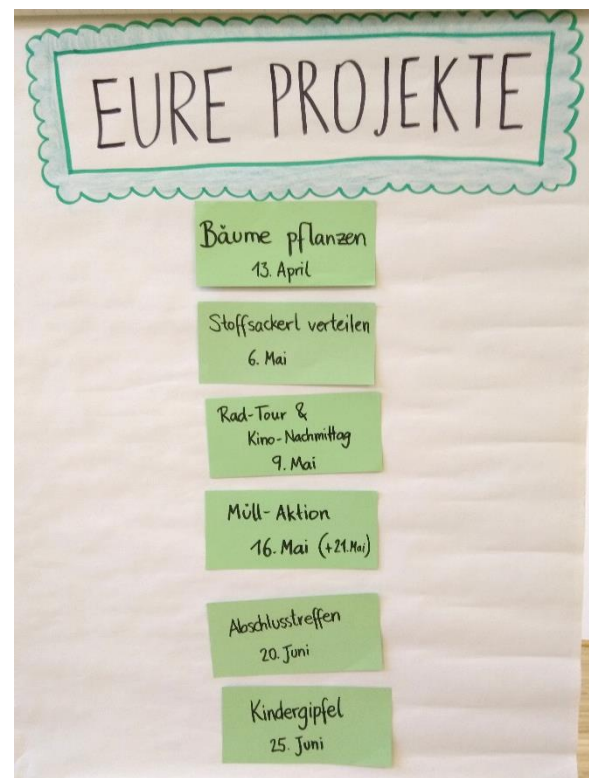 EURE PROJEKTE
Bäume pflanzen
13. April
Stoffsackerl verteilen
6. Mai
Rad-Tour &
Kino-Nachmittag
9. Mai
Müll-Aktion
16. Mai (+21.Mai)
Abschlusstreffen
20. Juni
Kindergipfel
25. Juni